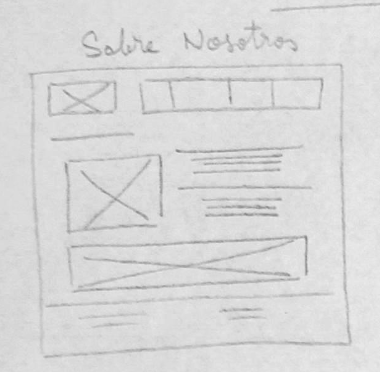 Sobre Nosotros